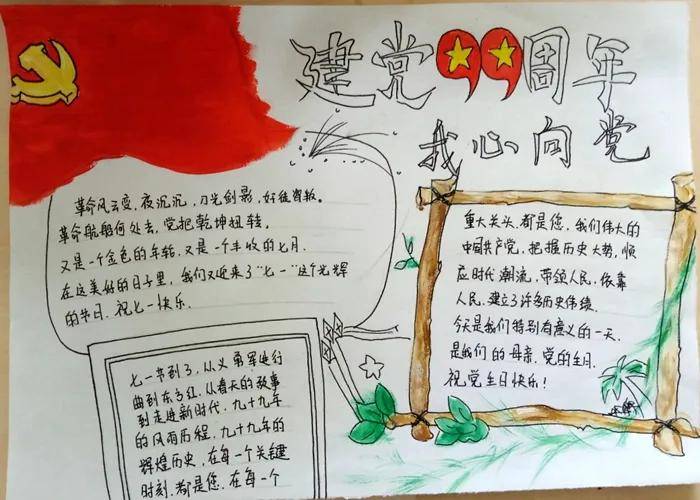 建党99周年
我心向党
革命风云变，夜沉沉，刀光剑影，好往胥叛。
革命航船何处去，党把乾坤扭转。
又是一个金色的年轮，又是一个丰收的七月，
在这美好的日子里，我们又迎来了“七一”这个光辉
的节日．祝七一快乐．
重大关头．都是您，我们伟大的
中国共产党，把握历史大势，顺
应时代潮流，带领人民，依靠
人民，建立了许多历史伟绩．
今天是我们特别有意义的一天．
是我们的母亲，党的生日．
祝党生日快乐！
七一节到了，从义勇军进行
曲到东方红，从春天的故事
到走进新时代，九十九年
的风雨历程，九十九年的
辉煌历史，在每一个关键
时刻．都是您，在每一个